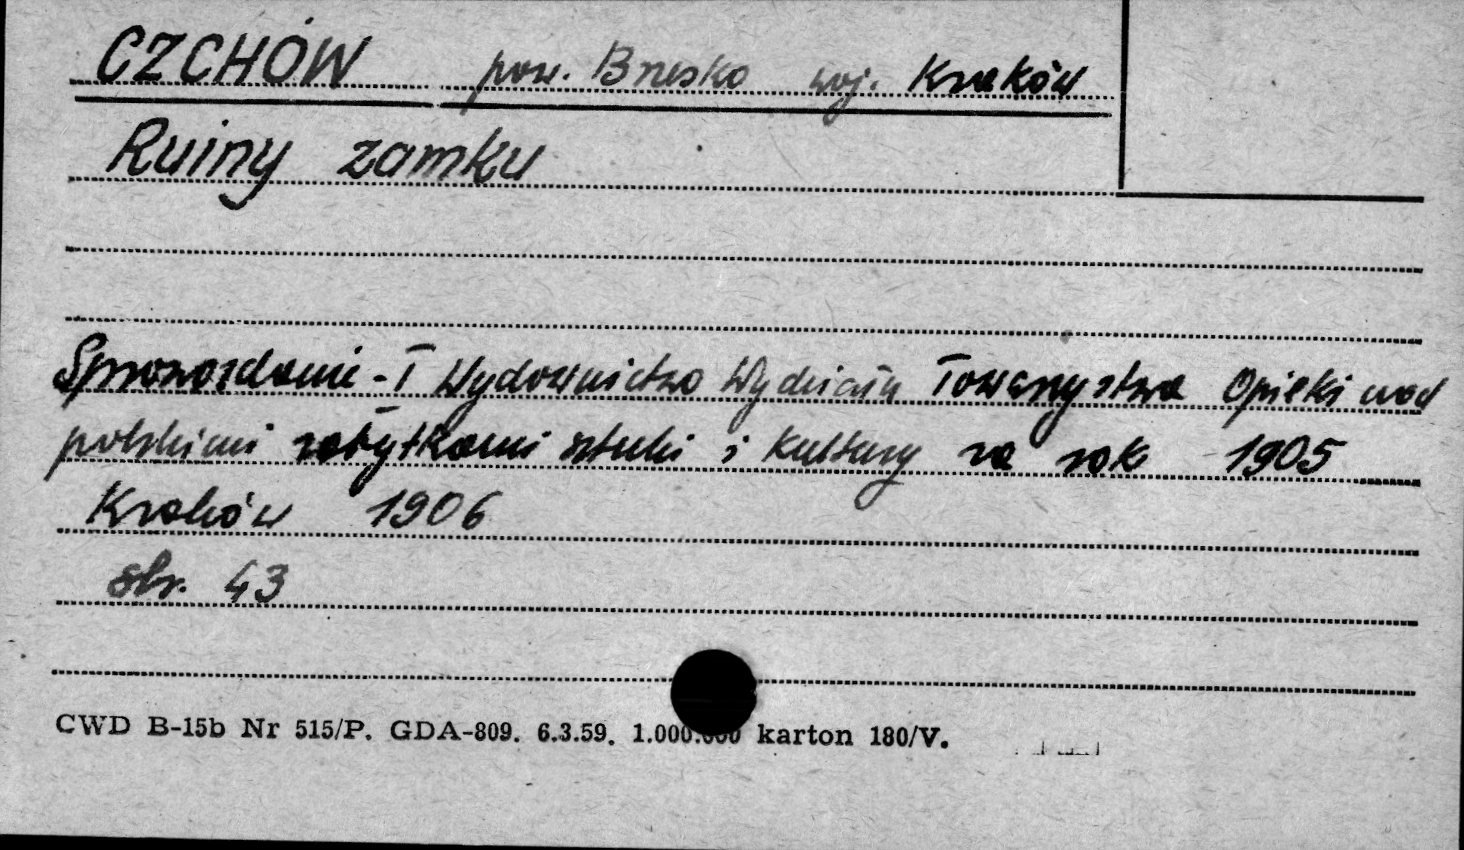 CZCHÓW pow. Brzesko woj. Kraków
Ruiny zamku
Sprawozdanie - I Wydawnictwo Wydziału Towarzystwa Opieki nad
polskimi zabytkami sztuki i kultury za rok 1905
Kraków 1906
str. 43
CWD B-15b Nr 515/P. GDA-809. 6.3.59. 1.000.000 karton 180/V.